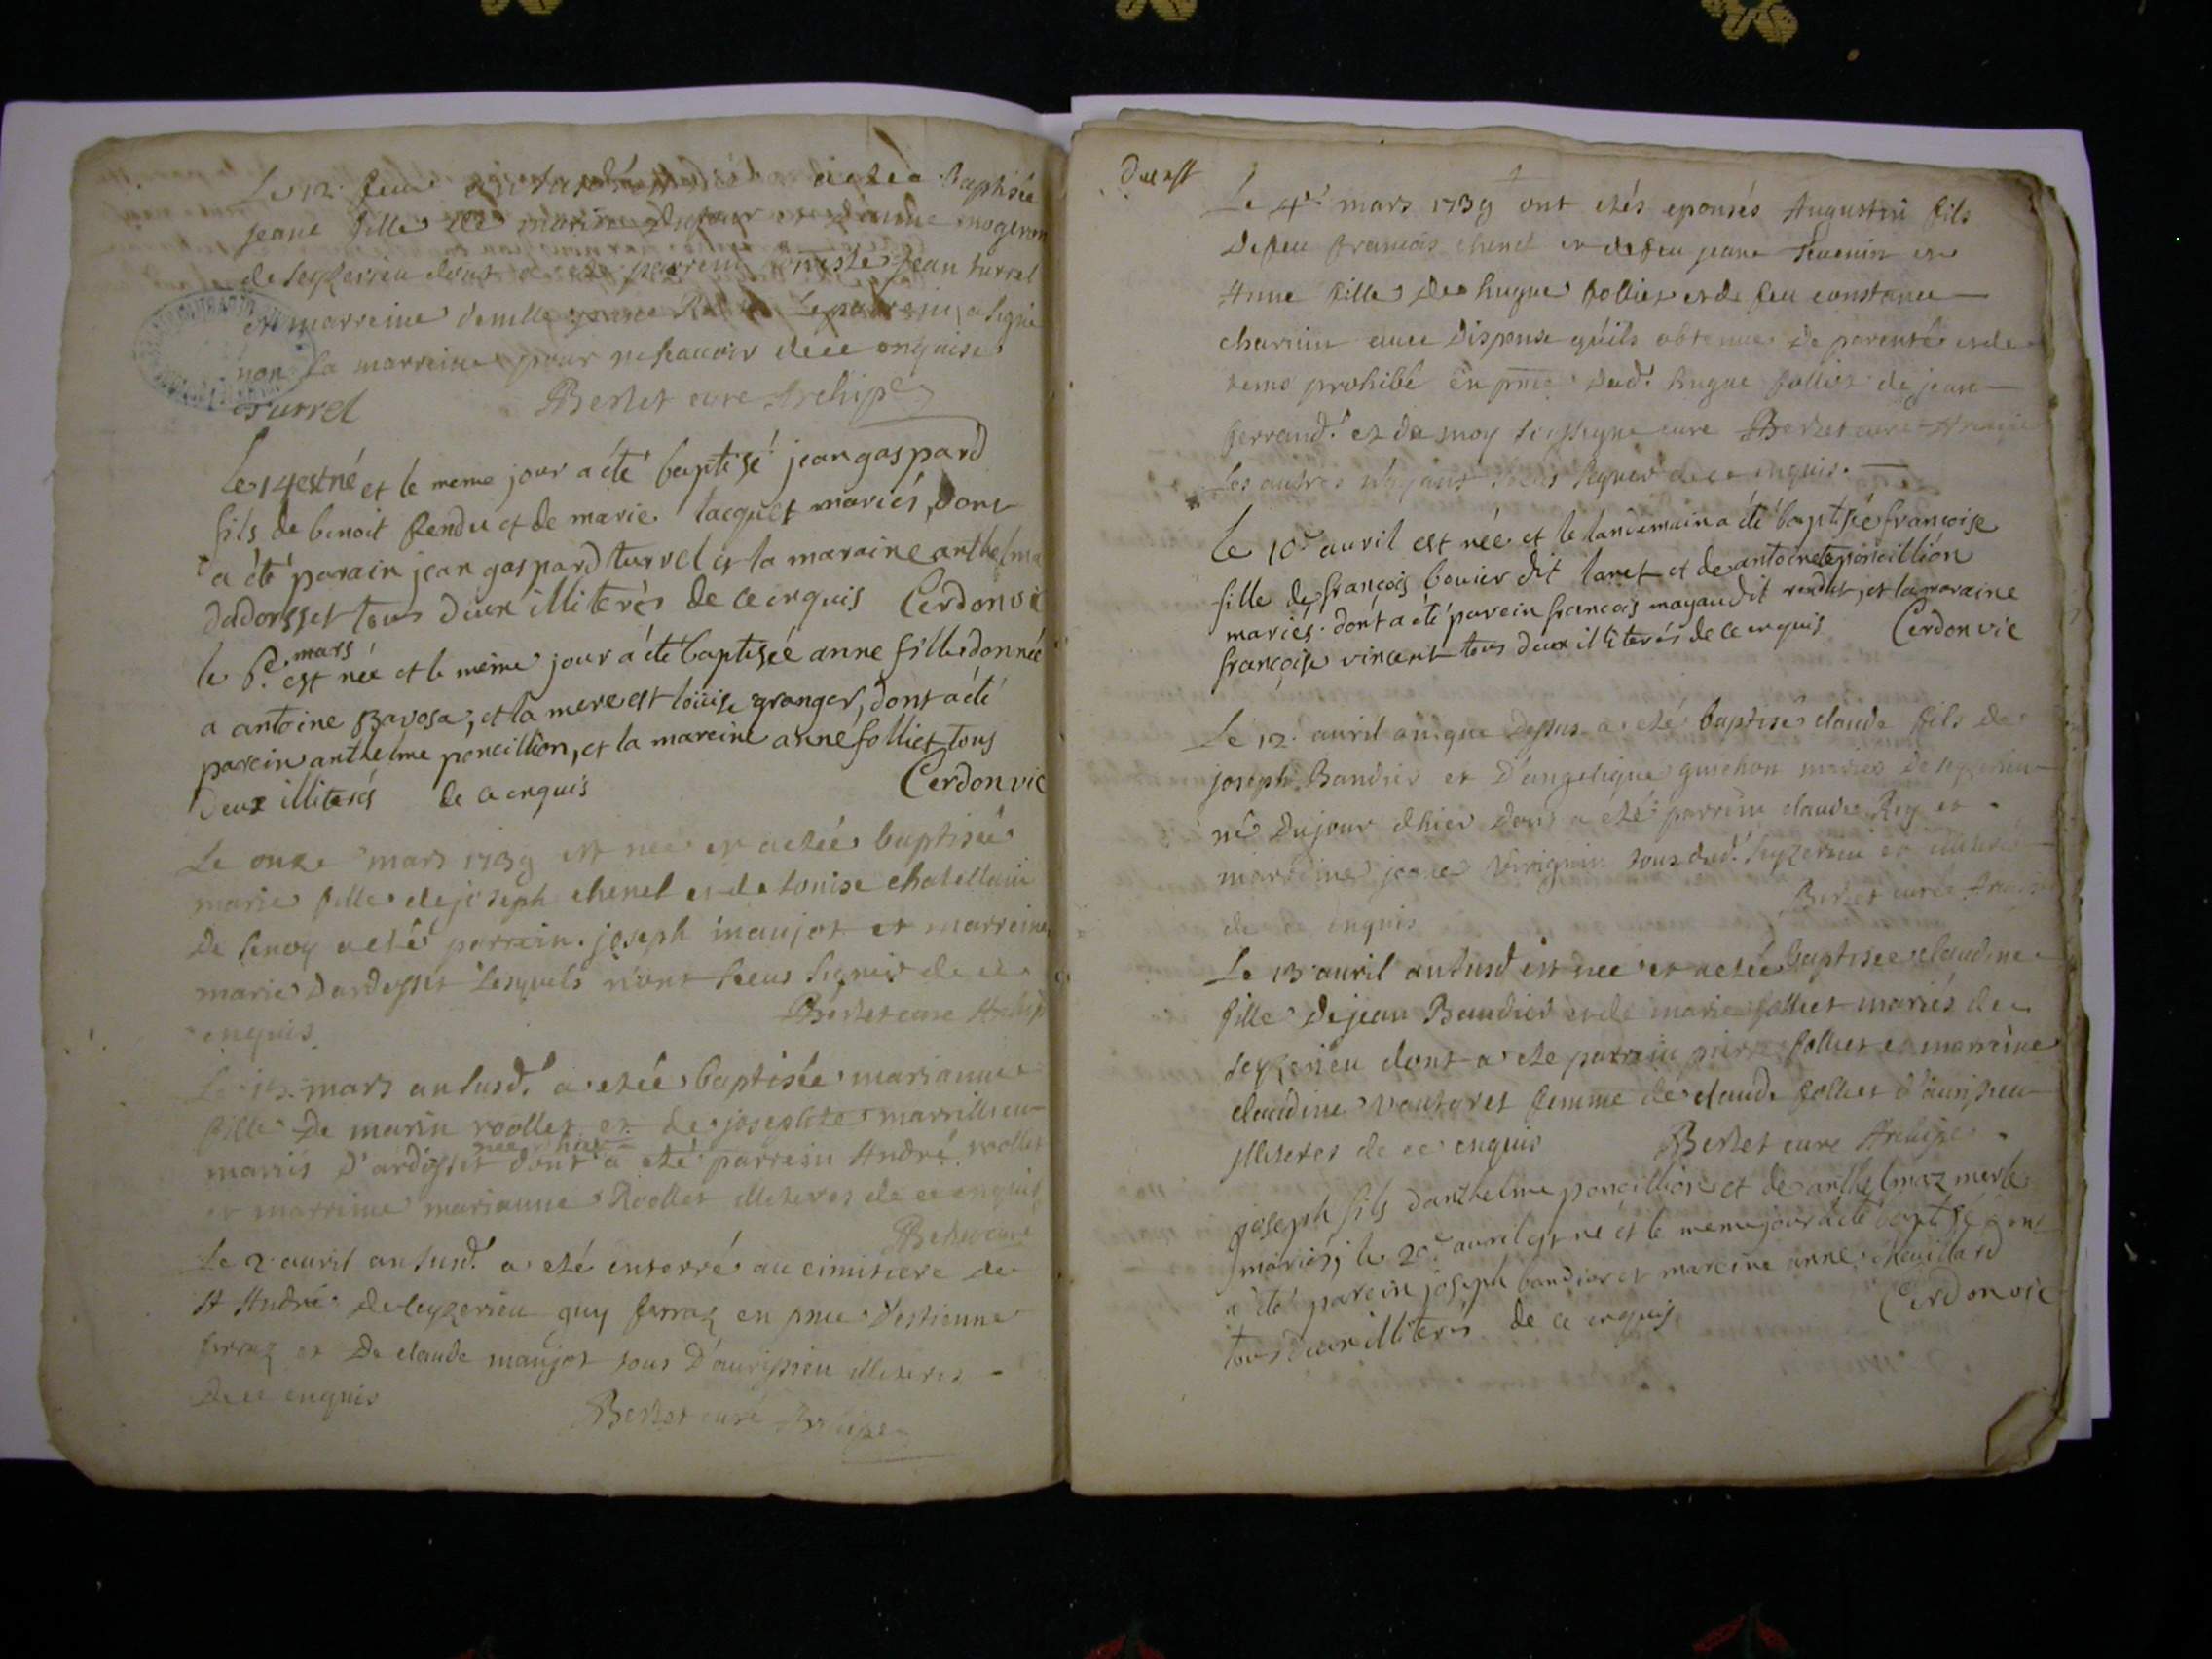 Le 12. feur a etée baptisée
jeane fille de marin Dufour et Claudine mogeron
de seyzerieu dont a ete parrein jean turrel
et marreine demlle Le parrein a signé
non la marreine pour ne scauoir de ce enquise
Turrel Berlet cure Archip
le 14 est né et le meme jour a été baptisé jean gaspard
fils de benoit fendu et de marie jacquet mariés, dont
a été parain jean gaspard turrel et la maraine anthelma
dadorsset tous deux illiterés de ce enquis Cerdon vic
mars
le 6e. est née et le même jour a été baptisée anne fille donnée
a antoine bavosa, et la mere est loüise granger, dont a été
parein anthelme poncillion, et la mareine anne folliet tous
Deux illiterés de ce enquis Cerdon vic
Le onze mars 1739 est nee et a etée baptisée
marie fille de joseph chenel et de louise chatellain
de senoy a eté parrein joseph maujot et marreine
marie Dardosset Lesquels n'ont sceus signer de ce
enquis. Berlet cure Archip
Le mars an susd. a etée baptisée marianne
fille De marin roollet et de josephte marrillieu
née hier
mariés D'ardosset dont a eté parrein André roollet
et marreine marianne Roollet illiteres de ce enquis
Berlet cure
Le 2 auril an susd. a eté enterré au cimitiere de
St André De seyzerieu guy ferraz en pnce D'estienne
ferraz et De claude maujot tous D'aurissieu illiteres
De ce enquis Berlet curé Archip
Le 4e mars 1739 ont etés epousés Augustin fils
De feu francois chenel et de feu jeane teuenin et
Anne fille de hugue folliet et de feu constance
charuin auec Dispense qu'ils obtenue De parenté et de
tems prohibé en pnce Dud. hugue folliet de jean
ferrand. et de moy soussigne cure Berlet curé Archip
Les autres n'ayant sceus signer de ce enquis.
Le 10e auril est née et le landemain a été baptisée françoise
fille de françois bouvier dit lanet et de antoinete poncillion
mariés. dont a été parein francois mayau dit rendet, et la maraine
françoise vincent tous deux illiterés de ce enquis Cerdon vic
Le 12. auril an que dessus a eté baptisé claude fils de
joseph Baudier et D'angelique guichon mariés De seyzerieu
né Du jour d'hier dont a eté parrein claude Rey et
marreine jeane tous dud. seyzerieu et illiteres
de ce enquis Berlet curé Archip
Le 13 auril an susd est nee et a etée baptisee claudine
fille De jean Baudier et de marie folliet mariés de
seyzerieu dont a ete parrein pierre folliet et marreine
claudine vautaret femme de claude folliet d'aurissieu
illiteres de ce enquis Berlet cure Archip
joseph fils danthelme poncillion et de anthelmaz merle
mariés, le 20e auril est né et le meme jour a été baptisé dont
a été parein joseph baudier et mareine anne cheuillard
tous deux illiterés de ce enquis Cerdon vic